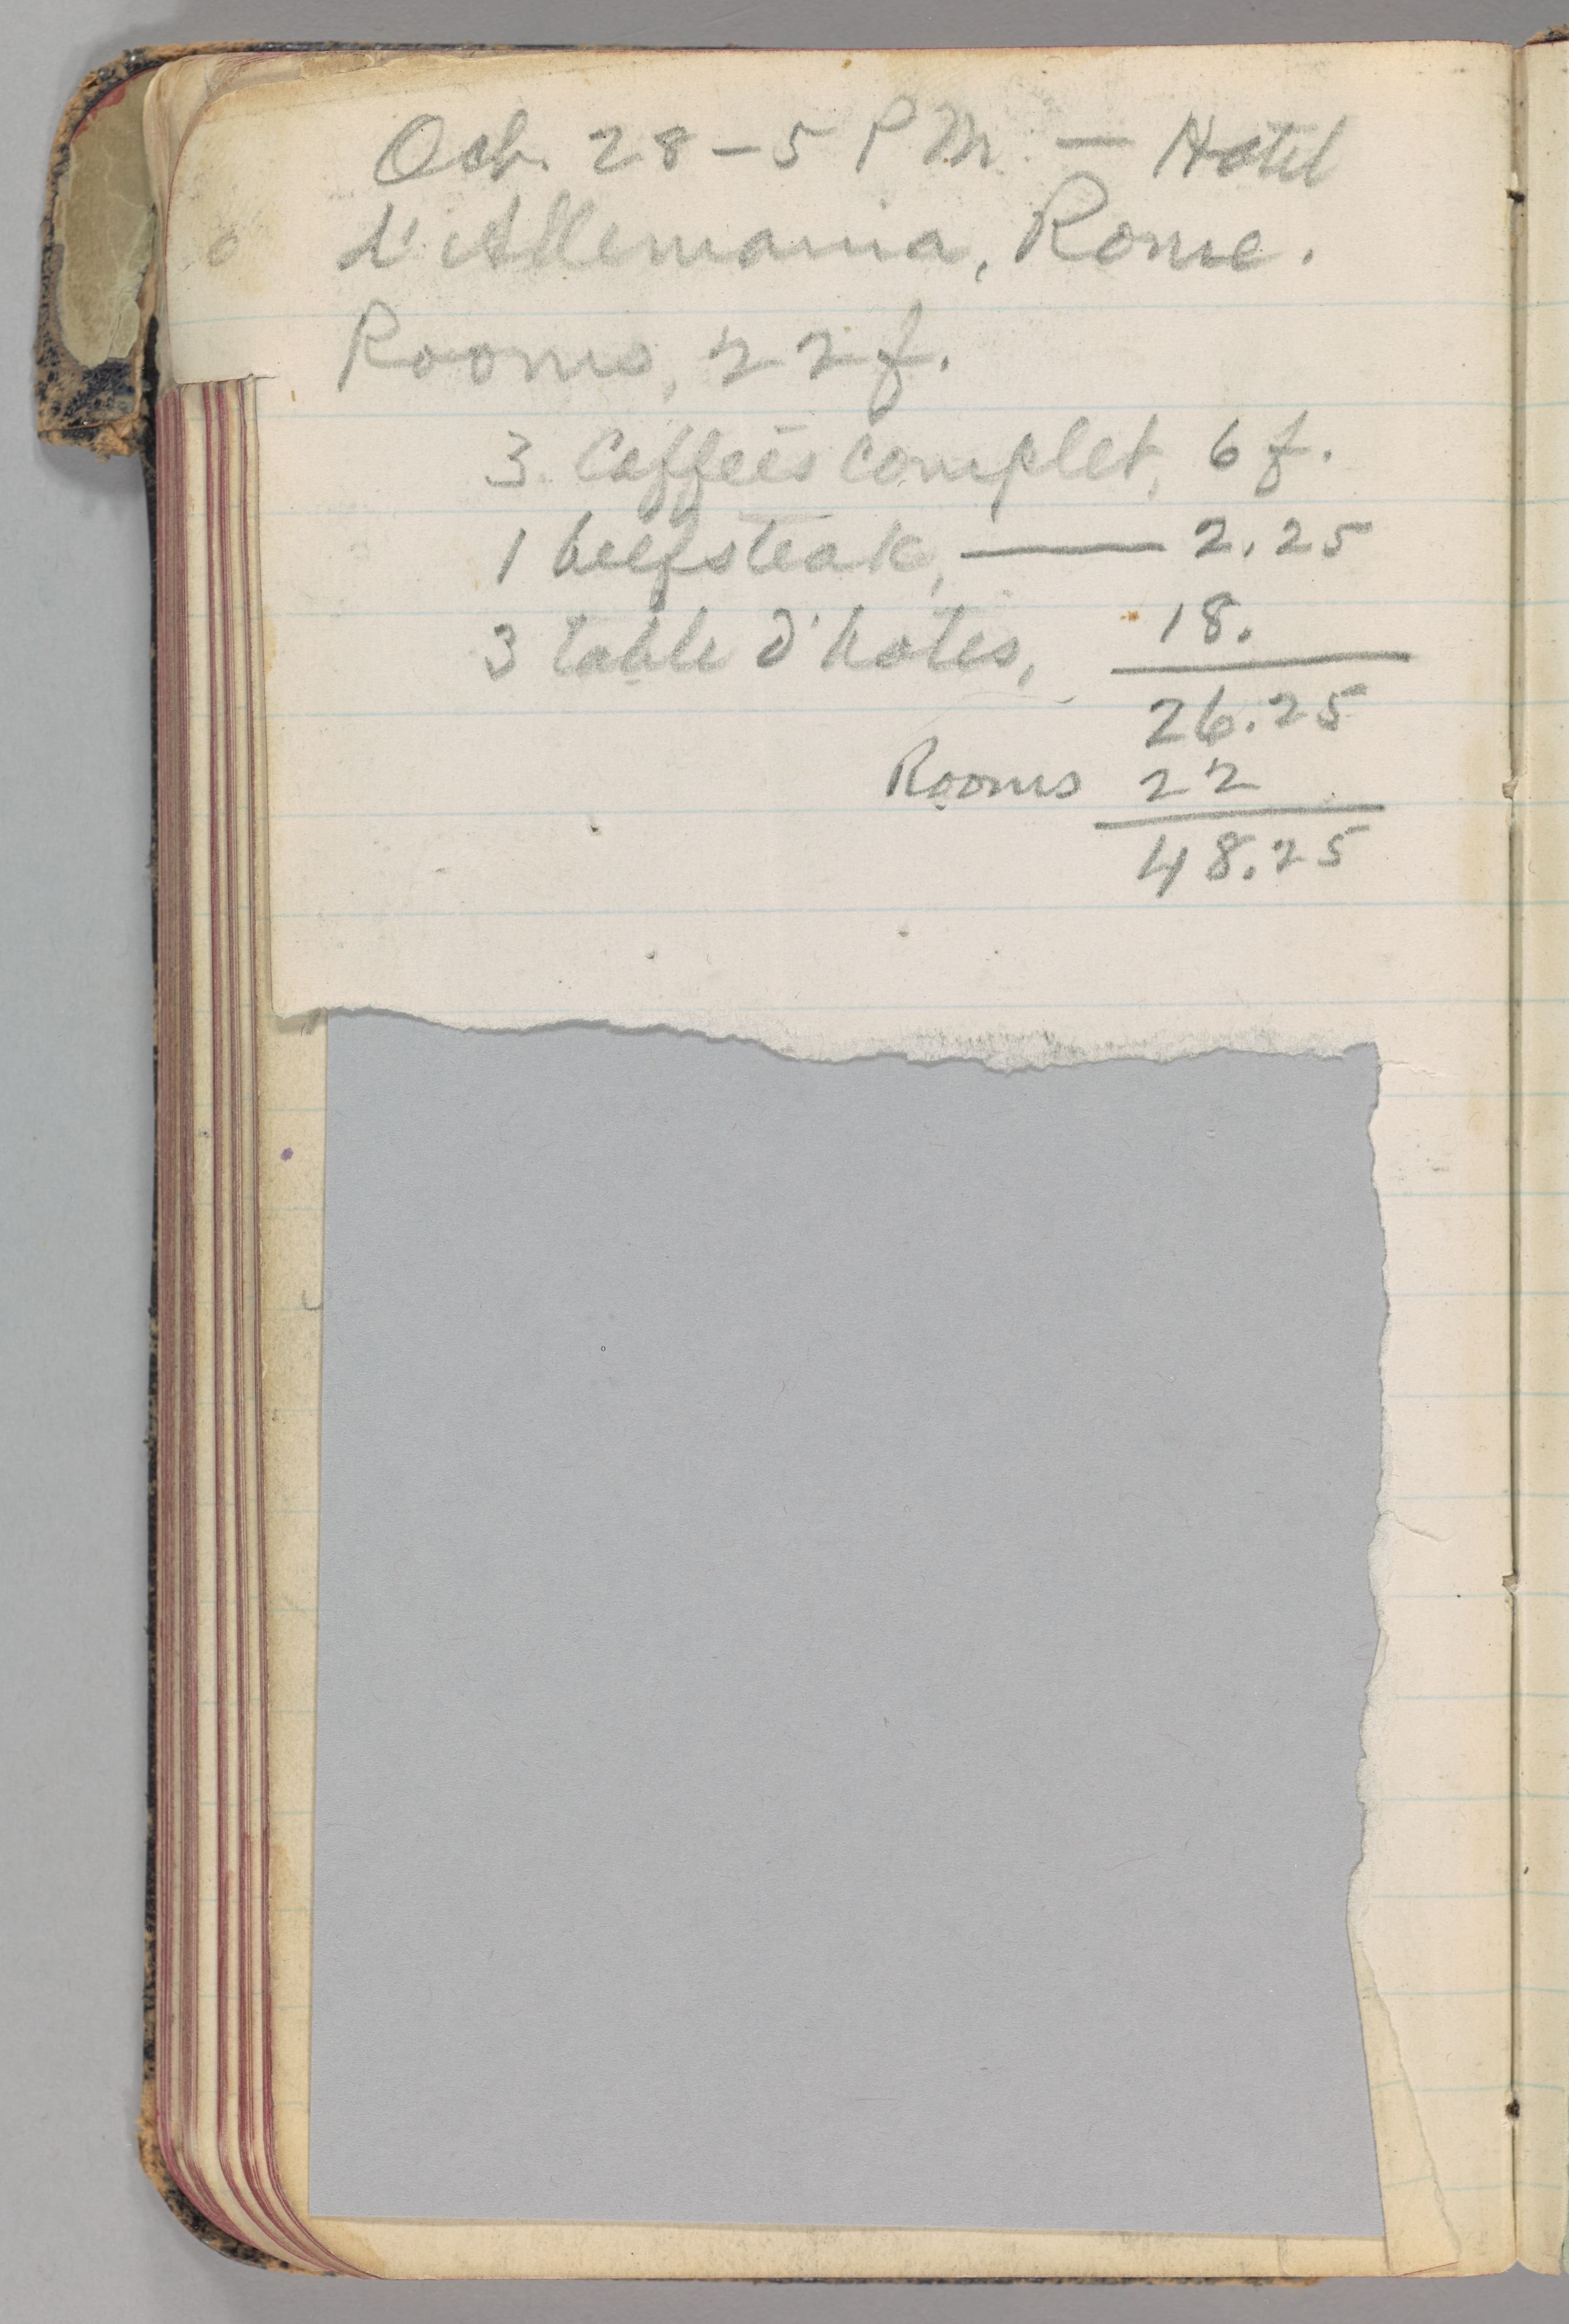 Oct. 28 – 5 P M. — Hotel
d'Allemania, Rome.
Rooms, 22 f.
3 Caffees complet, 6 f.
1 beefsteak, — 2.25
3 table d'hotes, 18.
26.25
Rooms 22
48.25